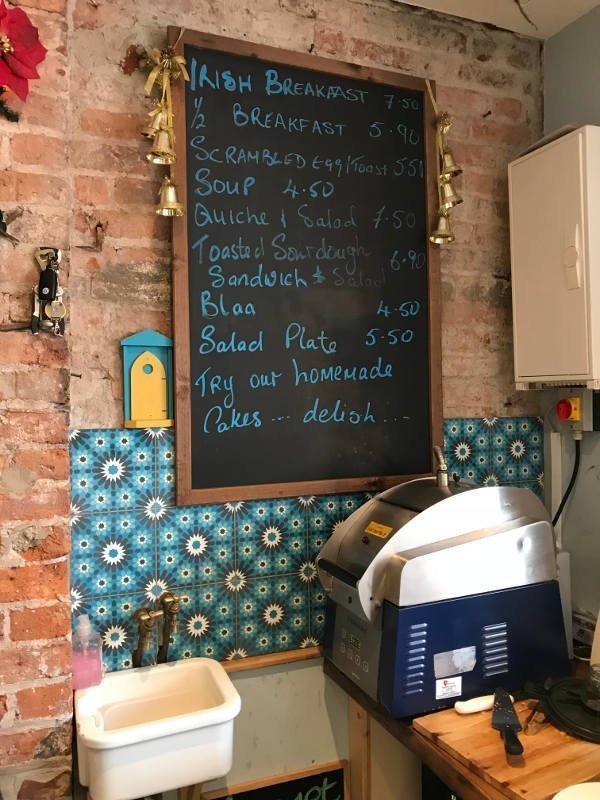 IRISH BREAKFAST 7.50
1/2 BREAKFAST 5.90
SCRAMBLED EGG/Toast 5.50
SOUP 4.50
Quiche & Salad 7.50
Toasted Sourdough
Sandwich & Salad 6.90
Blaa 4.50
Salad Plate 5.50
Try our homemade
Cakes... delish...